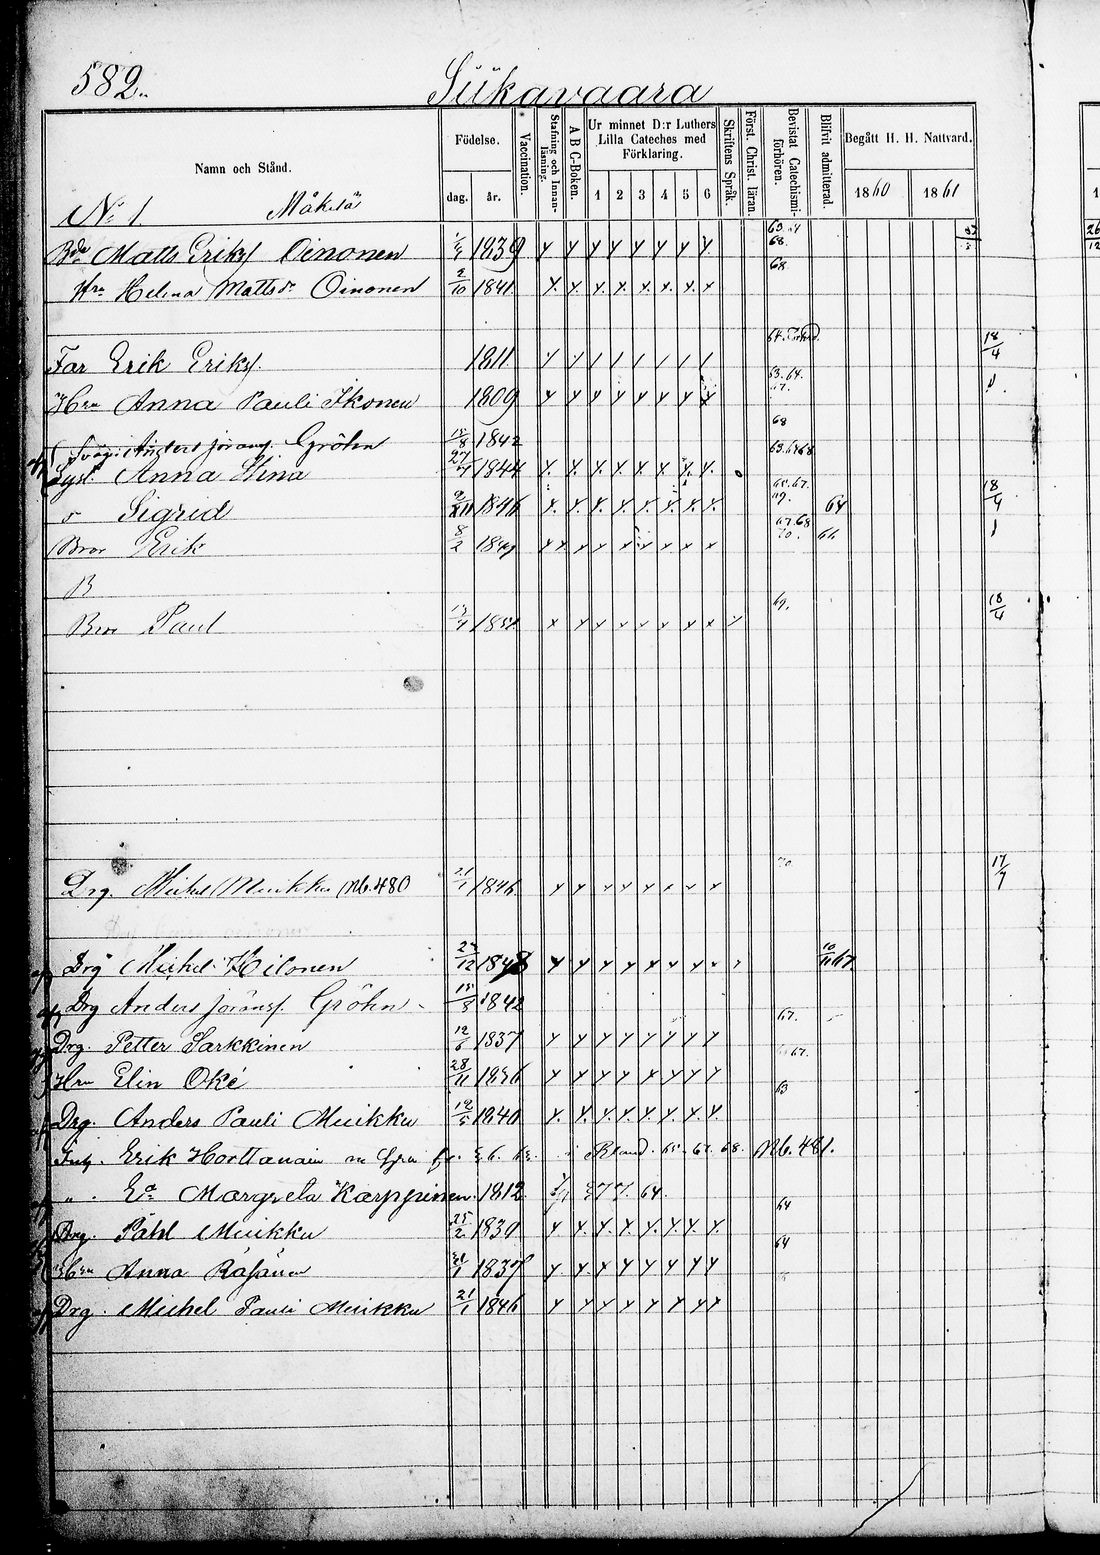 582.
Siikavaara
Namn och Stånd. Födelse. dag. år. Vaccination. Stafning och Innanläsning. A B C-Boken. Ur minnet D:r Luthers Lilla Cateches med Förklaring. 1 2 3 4 5 6 Skriftens Språk. Först. Christ. läran. Bevistat Catechismiförhören. Blifvit admitterad. Begått H. H. Nattvard. 1860 1861
No 1. Mäkelä
Matts Eriks Oinonen 1839 63.64 68.
Hru Helena Mattsdr Oinonen 2/10 1841 68
Far Erik Eriks. 1811 64. 18/4
Hru Anna Pauli Ikonen 1809 63.64. 67.
Svåg. Anders Göransf. Gröhn 15/8 1842 68
Syst. Anna Stina 27/7 1844 63.64 68
Sigrid 1846 65.67. 69. 64 18/4
Bror Erik 8/2 1849 67.68 70. 66
B
Bror Paul 1851 69. 18/4
Drg. Mickel Muikku No. 480 21/1 1846 70 17/7
Drg Michel 1848 10/11 67
Drg Anders Göransf. Gröhn 15/8 1842
Drg. Petter Sarkkinen 12/6 1837 67.
Hru Elin Oké 28/11 1836 67.
Drg. Anders Pauli Muikku 12/5 1840 63
Erik Horttanain Bland. 65. 67. 68. No. 481.
„ Ea Margreta Karppinen. 1812 64.
Drg. Påhl Muikku 25/2 1830 64
Hru Anna Räsänen 1837 64
Drg. Michel Pauli Muikku 21/1 1846
26/12